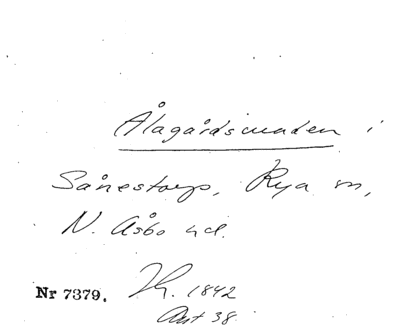 Ålagårdsmaden i
Sånestorp, Rya sn,
N. Åsbo hd.
Nr 7379. 1842
38